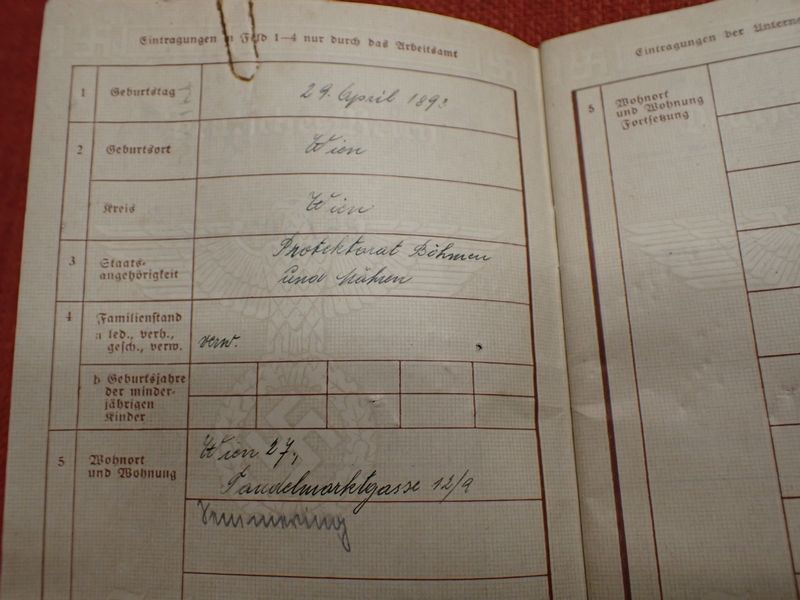 Eintragungen in Feld 1—4 nur durch das Arbeitsamt
1 Geburtstag 29. April 1893
2 Geburtsort Wien
Kreis Wien
3 Staats-
angehörigkeit
Protektorat Böhmen
und Mähren
4 Familienstand
a led., verh.,
gesch., verw.
verw.
b Geburtsjahre
der minder-
jährigen
Kinder
5 Wohnort
und Wohnung
Wien 27,
Tandelmarktgasse 12/9
Semmering
Eintragungen der
5 Wohnort
und Wohnung
Fortsetzung